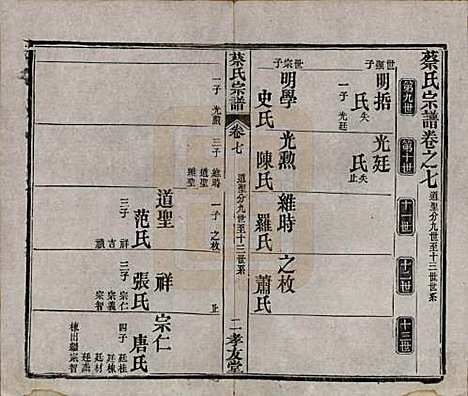 蔡氏宗譜卷之七
道聖分九世至十三世世系
第九世
第十世
十一世
十二世
十三世
世聖子
明括
氏失
一子
光廷
光廷
氏失
止
世宗子
明學
史氏
光勲
陳氏
維時
羅氏
之枚
蕭氏
蔡氏宗譜
卷七
道聖分九世至十三世世系
二孝友堂
一子
光勲
三子
維時
道聖
維聖
一子
之枚
止
道聖
范氏
三子
祥
吉
禎
祥
張氏
三子
宗仁
宗義
宗智
宗仁
唐氏
四子
廷桂
廷棟
廷材
廷
棟出繼宗智